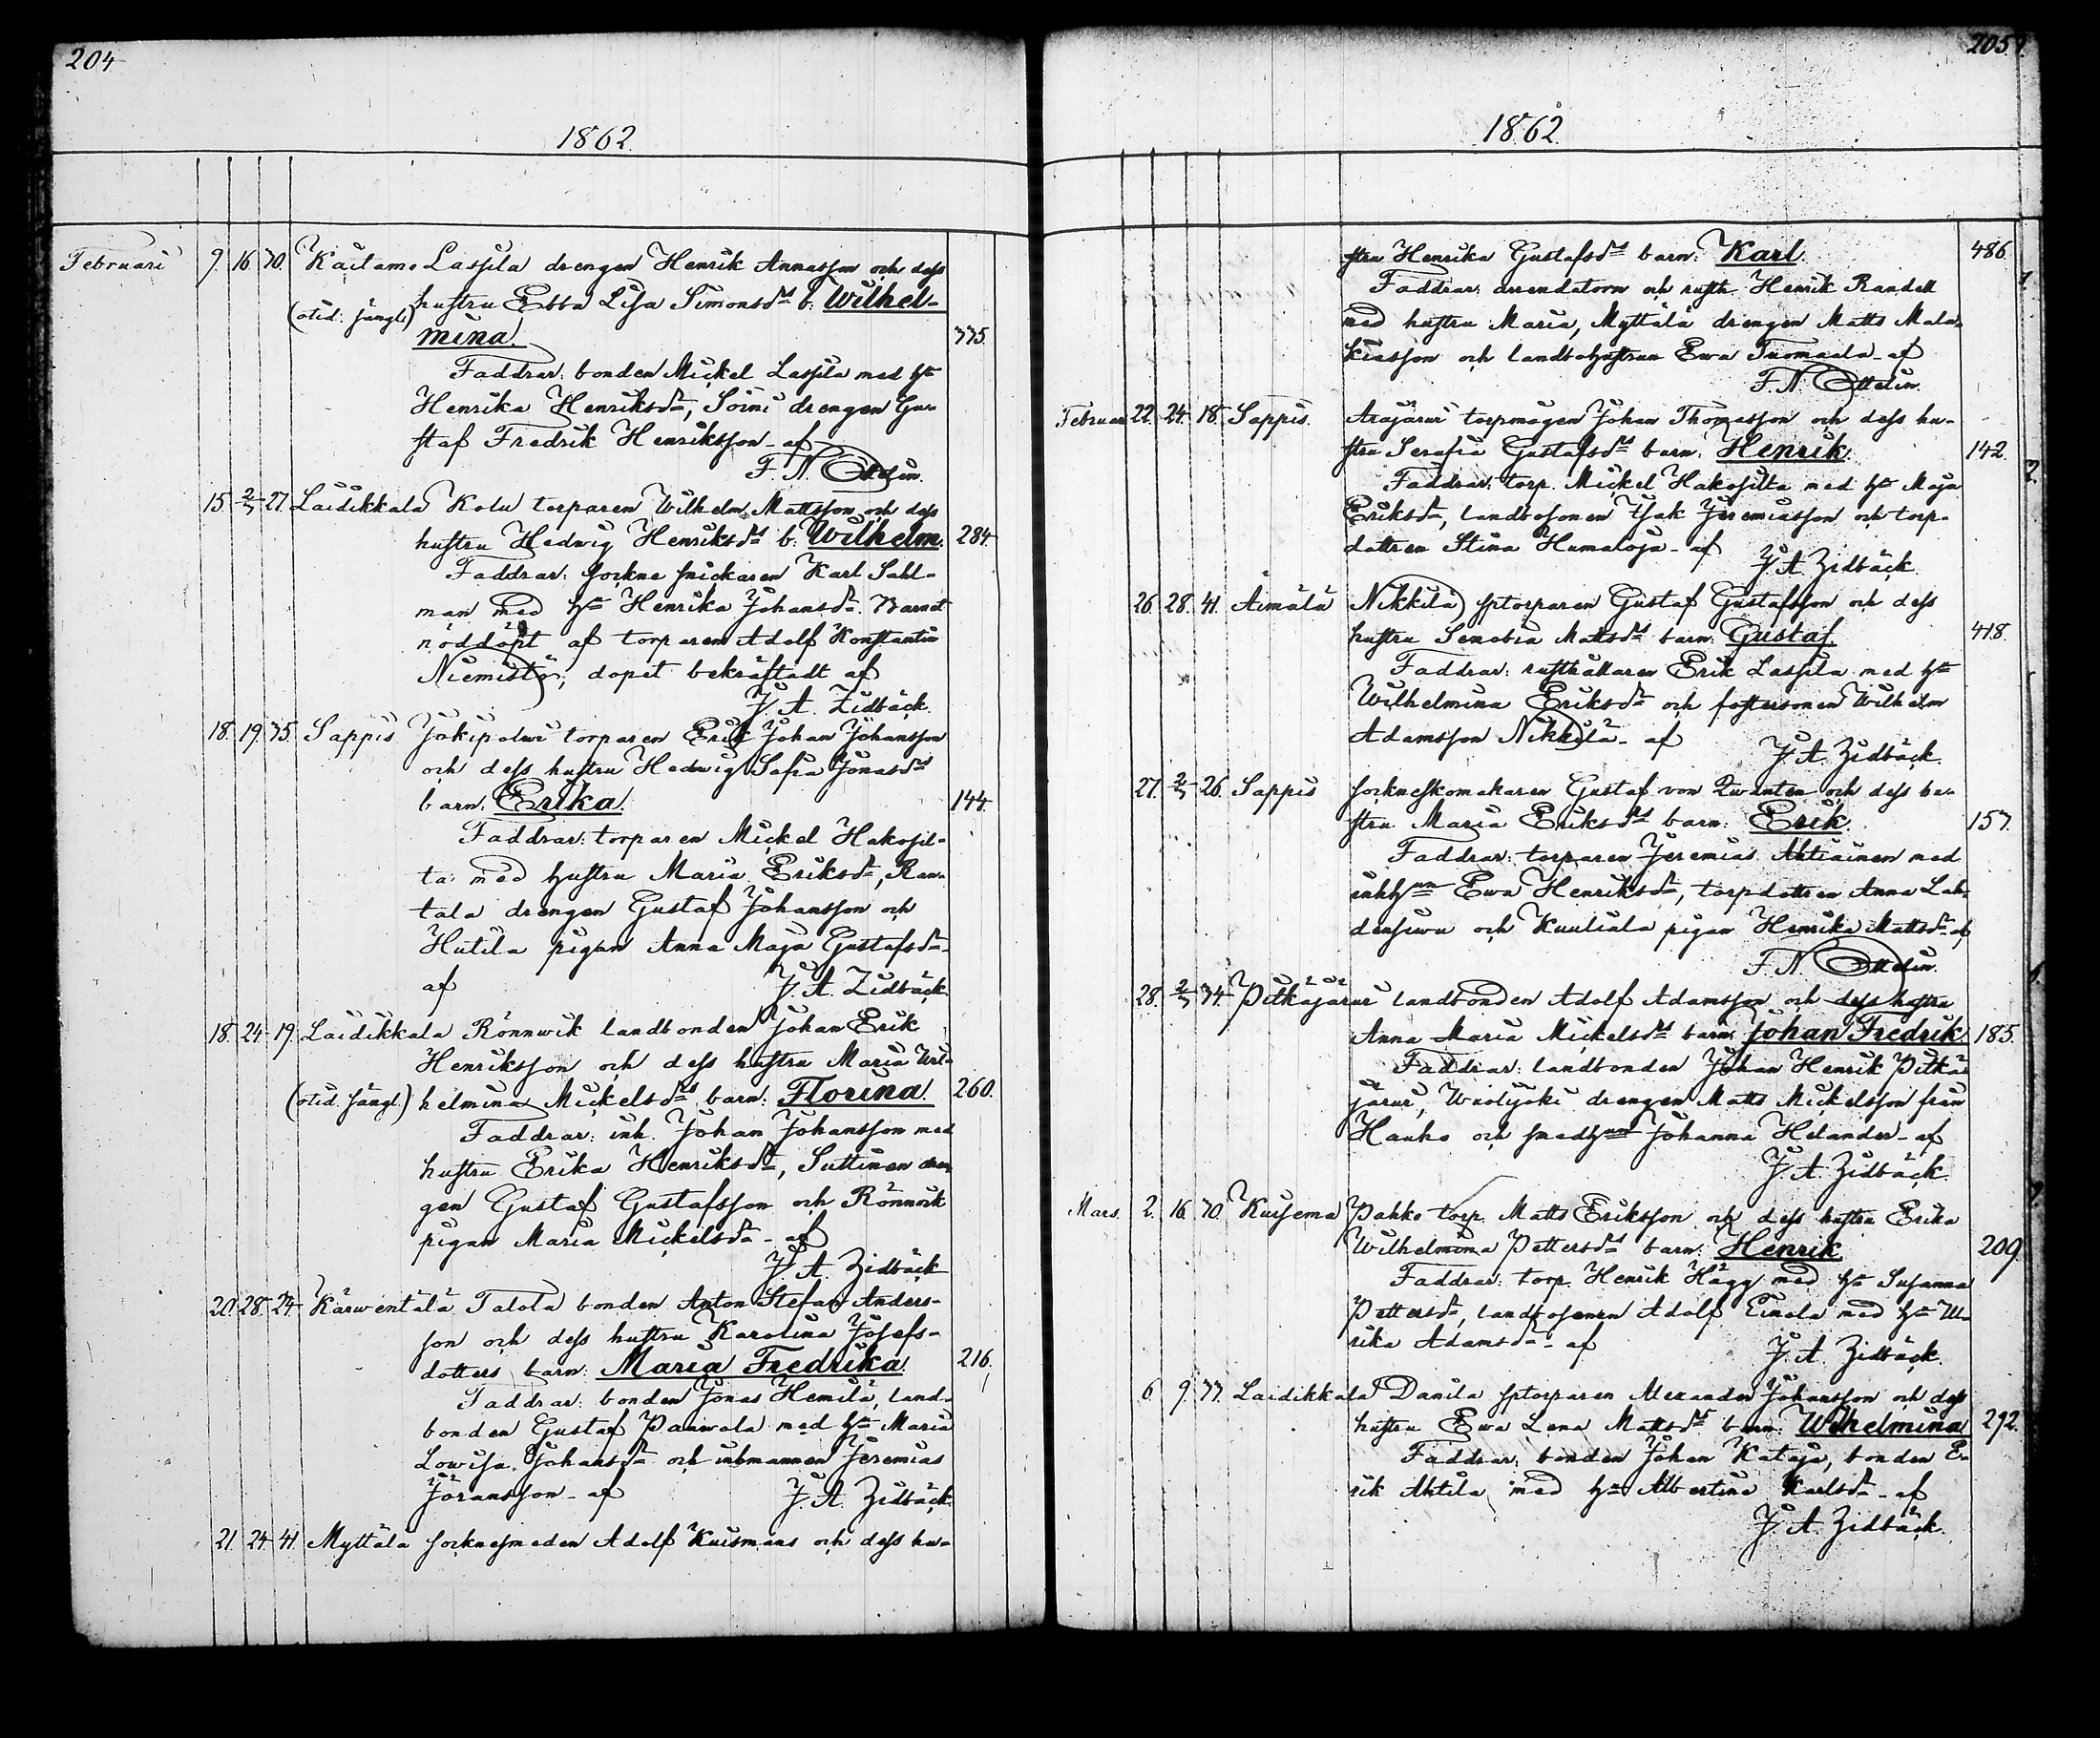 204
1862.
Februari 9. 16. 30. Kaitamo Lassila drengen Henrik Annasson och dess
(otid: sängl:) hustru Ebba Lisa Simonsdrs b: Wilhel-
mina. 335.
Faddrar: bonden Mickel Lassila med hu
Henrika Henriksdr, Soini drengen Gu-
staf Fredrik Henriksson - af
F. N. Ottelin.
15. 2/3 27. Laidikkala Kolu torparen Wilhelm Mattsson och dess
hustru Hedwig Henriksdrs b: Wilhelm. 284.
Faddrar: sockne snickaren Karl Sahl-
man med hu Henrika Johansdr. Barnet
nöddöpt af torparen Adolf Konstantin
Niemistö; dopet bekräftadt af
J. A. Zidbäck.
18. 19. 35. Sappis Jokipolwi torparen Erik Johan Johansson
och dess hustru Hedwig Sofia Jonasdrs
barn: Erika. 144.
Faddrar: torparen Mickel Hakosil-
ta med hustru Maria Eriksdr, Ran-
tala drengen Gustaf Johansson och
Hutila pigan Anna Maja Gustafsdr-
af J. A. Zidbäck.
18. 24. 19. Laidikkala Rönnwik landbonden Johan Erik
Henriksson och dess hustru Maria Wil-
(otid. sängl.) helmina Mickelsdrs barn: Florina. 260.
Faddrar: inh. Johan Johansson med
hustru Erika Henriksdr, Suttinen dren
gen Gustaf Gustafsson och Rönnwik
pigan Maria Mickelsdr - af
J. A. Zidbäck
20. 28. 24. Kärwentälä Talola bonden Anton Stefan Anders-
son och dess hustru Karolina Josefs-
dotters barn: Maria Fredrika. 216.
Faddrar: bonden Jonas Hemilä, land-
bonden Gustaf Panwola med hu Maria
Lowisa Johansdr och inhmannen Jeremias
Göransson - af J. A. Zidbäck.
21. 24. 41. Myttälä socknesmeden Adolf Kuismans och dess hu-
205.
1862.
stru Henrika Gustafsdrs barn: Karl. 486.
Faddrar: arrendatorn och rusth. Henrik Randell
med hustru Maria, Myttälä drengen Matts Mala-
kiasson och landbohustrun Ewa Tuomaala - af
F. N. Ottelin.
Februari 22. 24. 18. Sappis. Arajärwi torpmågen Johan Thomasson och dess hu-
stru Serafia Gustafsdrs barn: Henrik. 142.
Faddrar: torp. Mickel Hakosilta med hu Maja
Eriksdr, landbosonen Isak Jeremiasson och torp-
dottren Stina Humaloja - af
J. A. Zidbäck
26. 28. 41. Aimälä Nikkilä sptorparen Gustaf Gustafsson och dess
hustru Senobia Mattsdrs barn: Gustaf. 418.
Faddrar: rusthållaren Erik Lassila med hu
Wilhelmina Eriksdr och fostersonen Wilhelm
Adamsson Nikkilä - af
J. A. Zidbäck.
27. 2/3 26. Sappis sockneskomakaren Gustaf von Qwanten och dess hu-
stru Maria Eriksdrs barn: Erik. 157.
Faddrar: torparen Jeremias Ahtiainen med
inhhun Ewa Henriksdr, torpdottren Anna Lah-
densuu och Kuuliala pigan Henrika Mattsdr af
F. N. Ottelin.
28. 2/3 34. Pitkäjärwi landbonden Adolf Adamsson och dess hustru
Anna Maria Mickelsdrs barn: Johan Fredrik. 185.
Faddrar: landbonden Johan Henrik Pitkä-
järwi, Wiolijoki drengen Matts Mickelsson från
Hauho och smedhun Johanna Helander - af
J. A. Zidbäck.
Mars. 2. 16. 30. Kuisema Pahko torp. Matts Eriksson och dess hustru Erika
Wilhelmina Pettersdrs barn: Henrik 209.
Faddrar: torp. Henrik Hägg med hu Susanna
Pettersdr, landbosonen Adolf Einola med hu Ul-
rika Adamsdr - af
J. A. Zidbäck.
6. 9. 37. Laidikkala Danila sptorparen Alexander Johansson och dess
hustru Ewa Lena Mattsdrs barn: Wilhelmina 292.
Faddrar: bonden Johan Kataja, bonden E-
rik Ahtila med hu Albertina Karlsdr - af
J. A. Zidbäck.